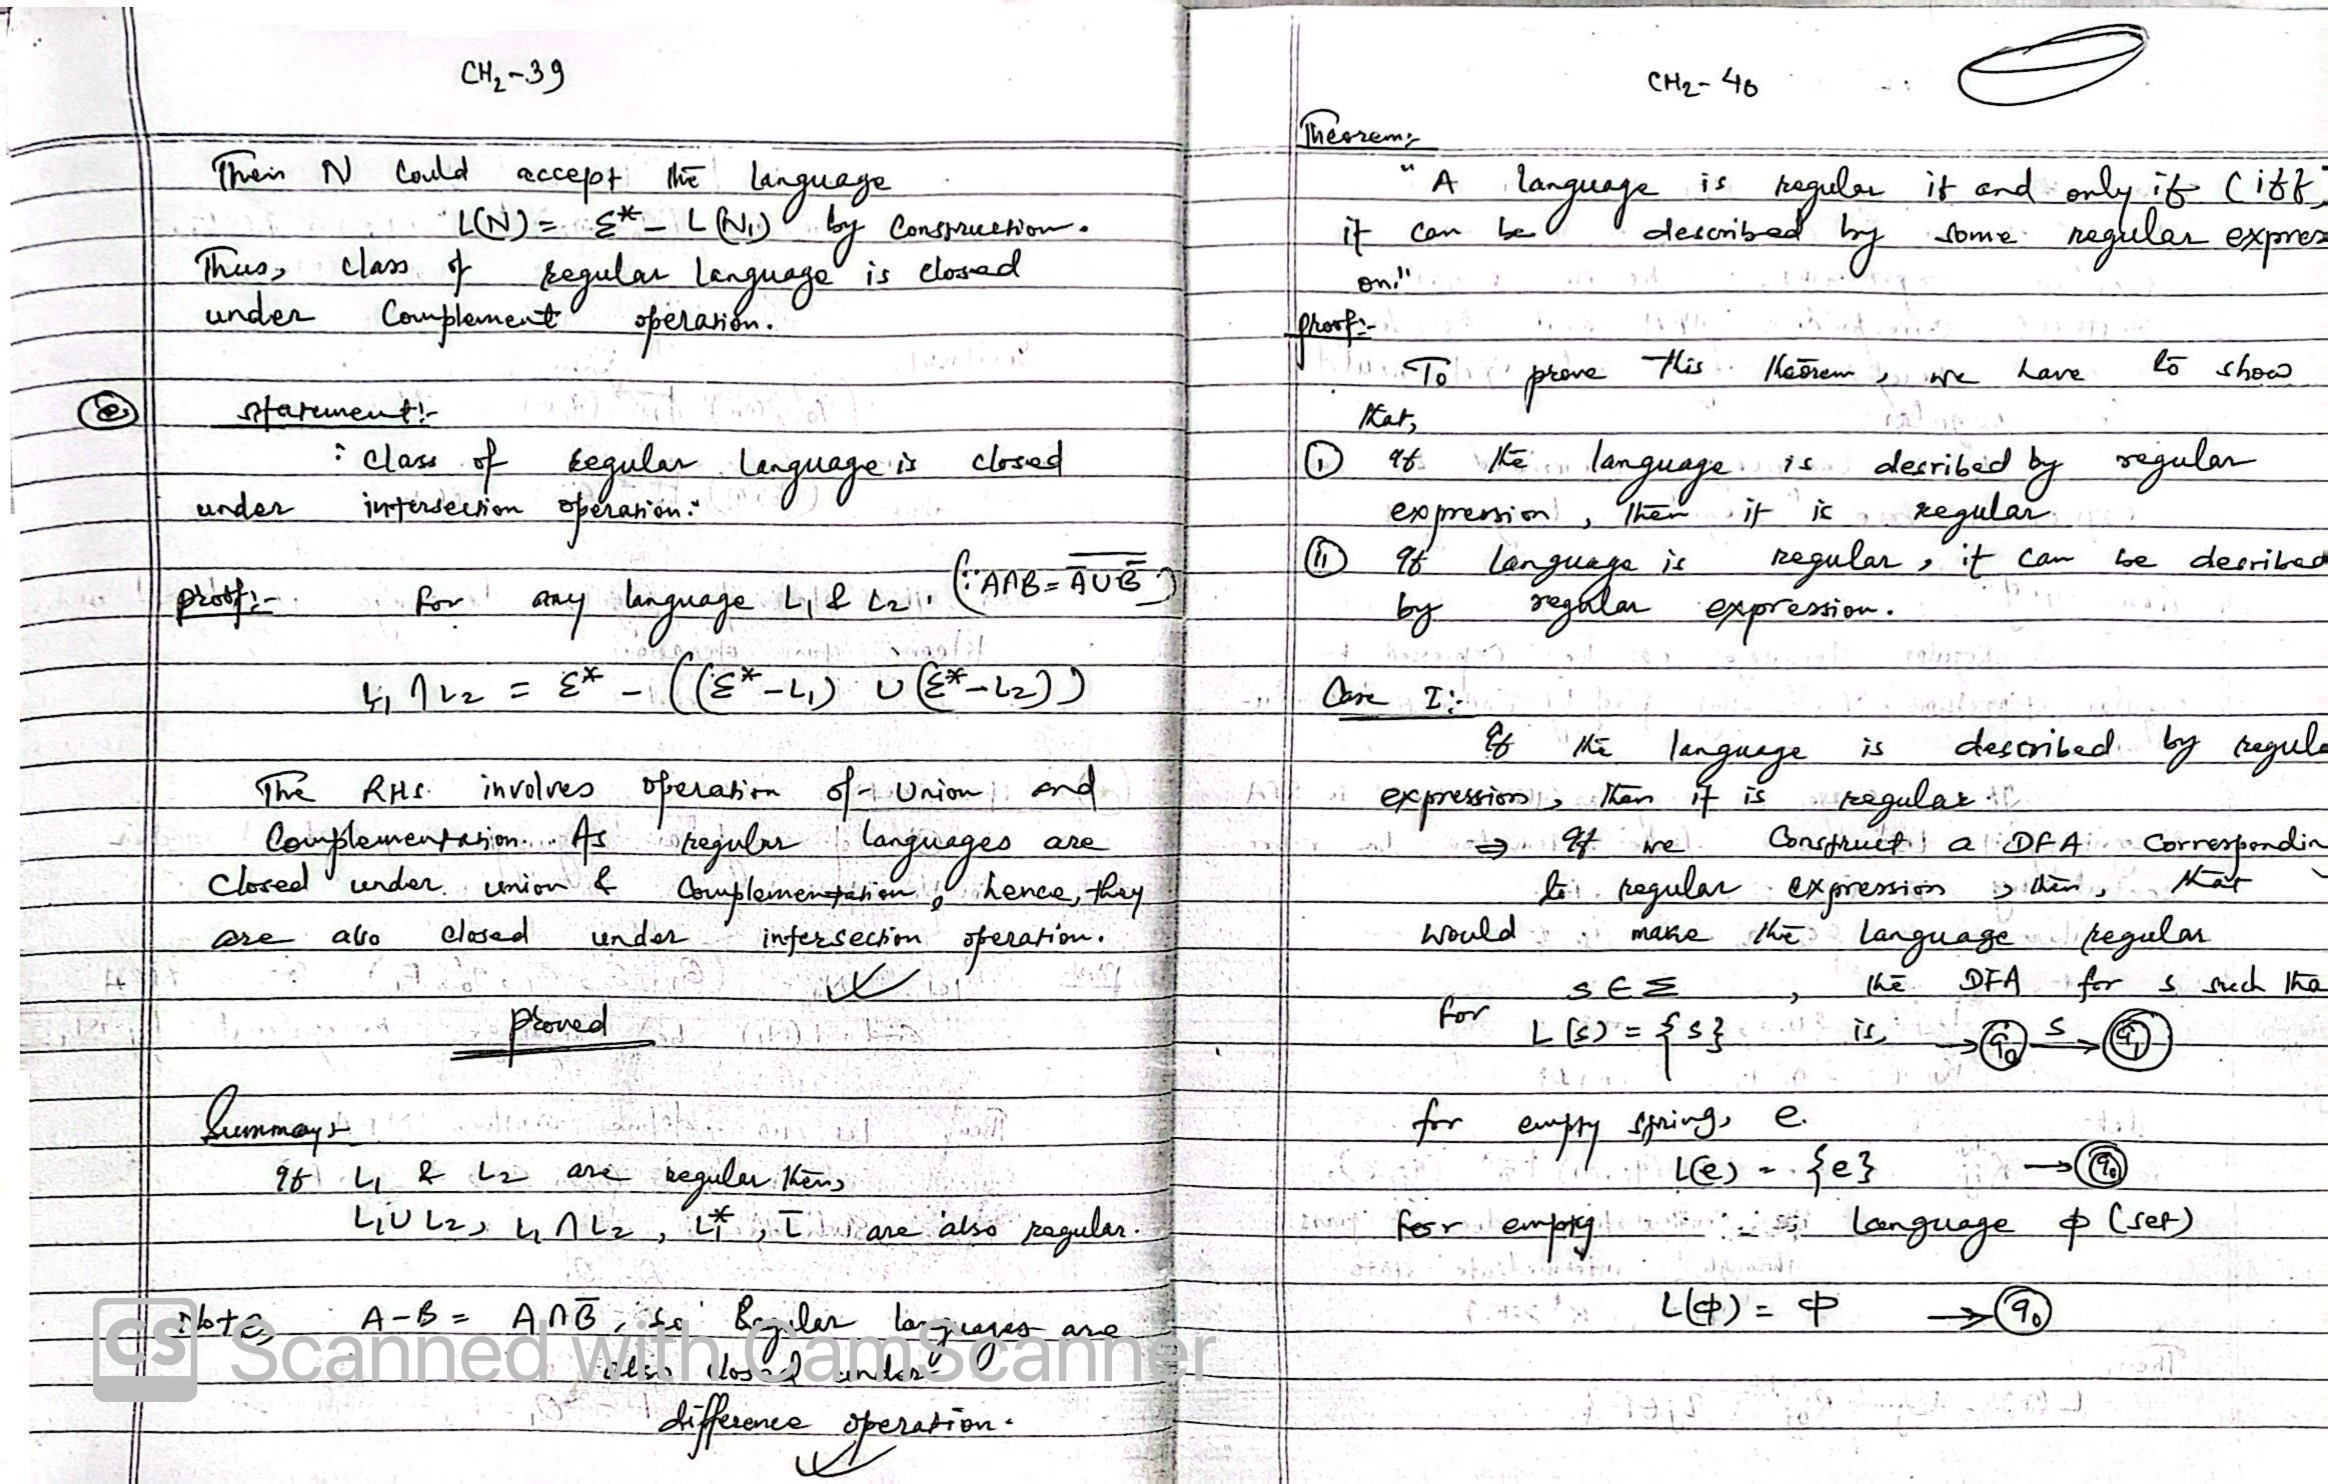 CH2-39
Then N Could accept the language
L(N) = Σ* - L(N1) by Construction.
Thus, class of regular language is closed
under Complement operation.
e
statement:-
"class of regular language is closed
under intersection operation."
proof:- For any language L1 & L2. (∵ A∩B = \overline{\overline{A}∪\overline{B}})
L1 ∩ L2 = Σ* - ((Σ*-L1) ∪ (Σ*-L2))
The RHS involves operation of Union and
Complementation. As regular languages are
Closed under union & Complementation, hence, they
are also closed under intersection operation.
proved
Summary:
If L1 & L2 are regular then,
L1∪L2, L1∩L2, L1*, L̅ are also regular.
Note, A-B = A∩B̅, so Regular languages are
also closed under
difference operation.
CS Scanned with CamScanner
CH2-40
Theorem:
"A language is regular if and only if (iff)
it can be described by some regular express
on."
proof:-
To prove this theorem, we have to show
that,
(i) If the language is desribed by regular
expression, then it is regular
(ii) If language is regular, it can be desribed
by regular expression.
Case I:-
If the language is described by regula
expression, then it is regular.
⇒ If we Construct a DFA Correspondin
to regular expression, then, that
would make the language regular
for s ∈ Σ, the DFA for s such tha
L(s) = {s} is, → q0 s → q1
for empty string, e.
L(e) = {e} → q0
for empty language φ (set)
L(φ) = φ → q0